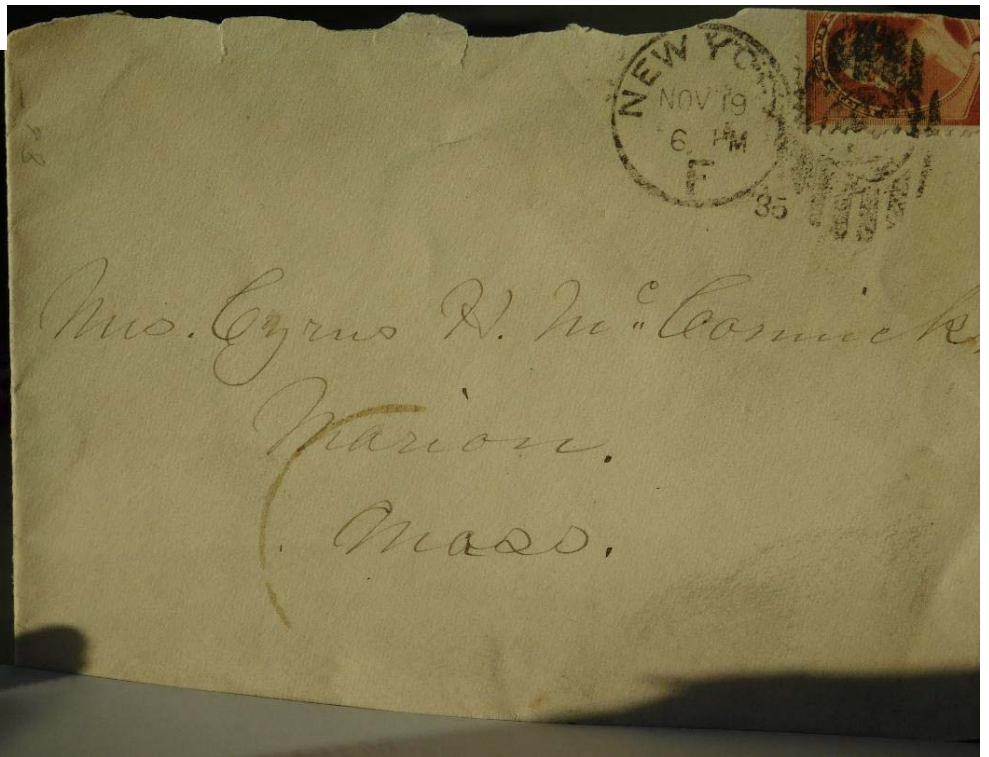 NEW YORK
NOV 19
6 PM
F
85
Mrs. Cyrus H. Mc Cormick,
Marion.
Mass.